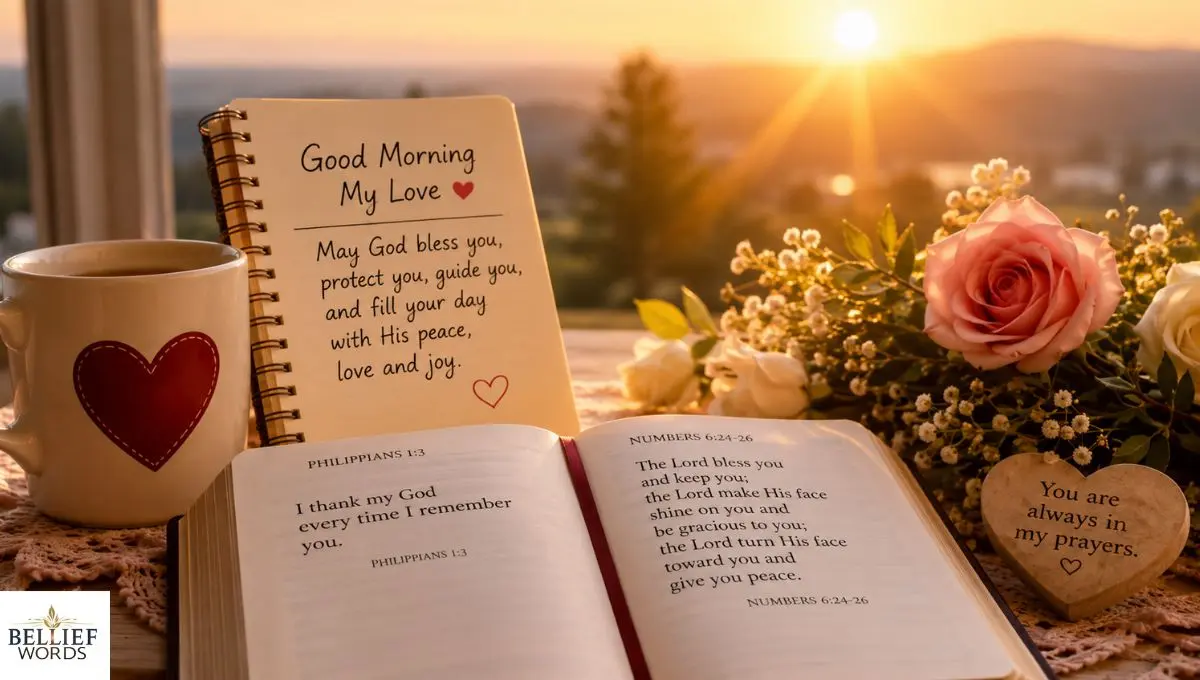 Good Morning
My Love
May God bless you,
protect you, guide you,
and fill your day
with His peace,
love and joy.
PHILIPPIANS 1:3
I thank my God
every time I remember
you.
PHILIPPIANS 1:3
NUMBERS 6:24-26
The Lord bless you
and keep you;
the Lord make His face
shine on you and
be gracious to you;
the Lord turn His face
toward you and
give you peace.
NUMBERS 6:24-26
You are
always in
my prayers.
BELLIEF
WORDS